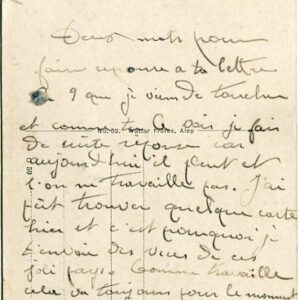 Deux mots pour
faire reponse a ta lettre
du 9 que je viens de toucher
No. 62. Wattar Frères, Alep
et comme tu le vois je fais
de suite reponse car
aujourd'hui il pleut et
l'on ne travaille pas. J'ai
pût trouver quelque carte
hier et c'est pourquoi je
t'envoie des vues de ces
joli pays. Comme travaille
cela va toujours pour le moment